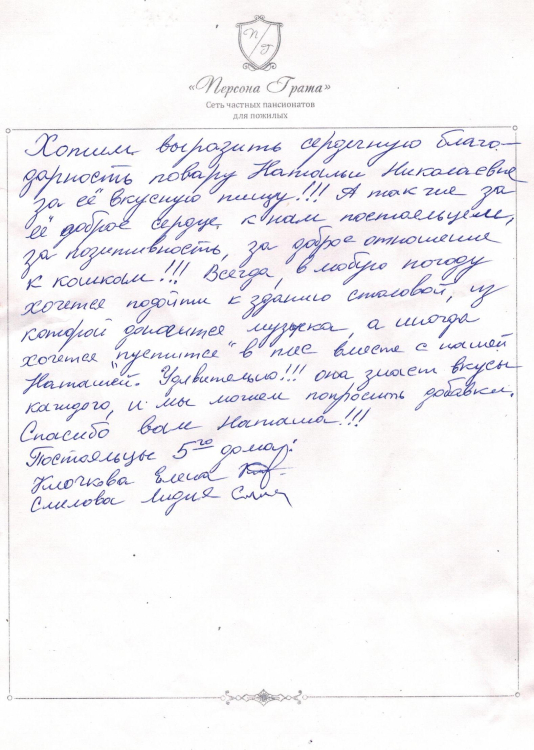 П/Г
«Персона Грата»
Сеть частных пансионатов
для пожилых
Хотим выразить сердечную благо-
дарность повару Натальи Николаевне
за её вкусную пищу!!! А так же за
её доброе сердце к нам постояльцем,
за позитивность, за доброе отношение
к кошкам!!! Всегда, в любую погоду
хочется подойти к зданию столовой, из
которой доносится музыка, а иногда
хочется "пустится" в пляс вместе с нашей
Наташей. Удивительно!!! она знает вкусы
каждого, и мы можем попросить добавки.
Спасибо вам Наташа!!!
Постояльцы 5го дома:
Клочкова Елена
Смелова Лидия